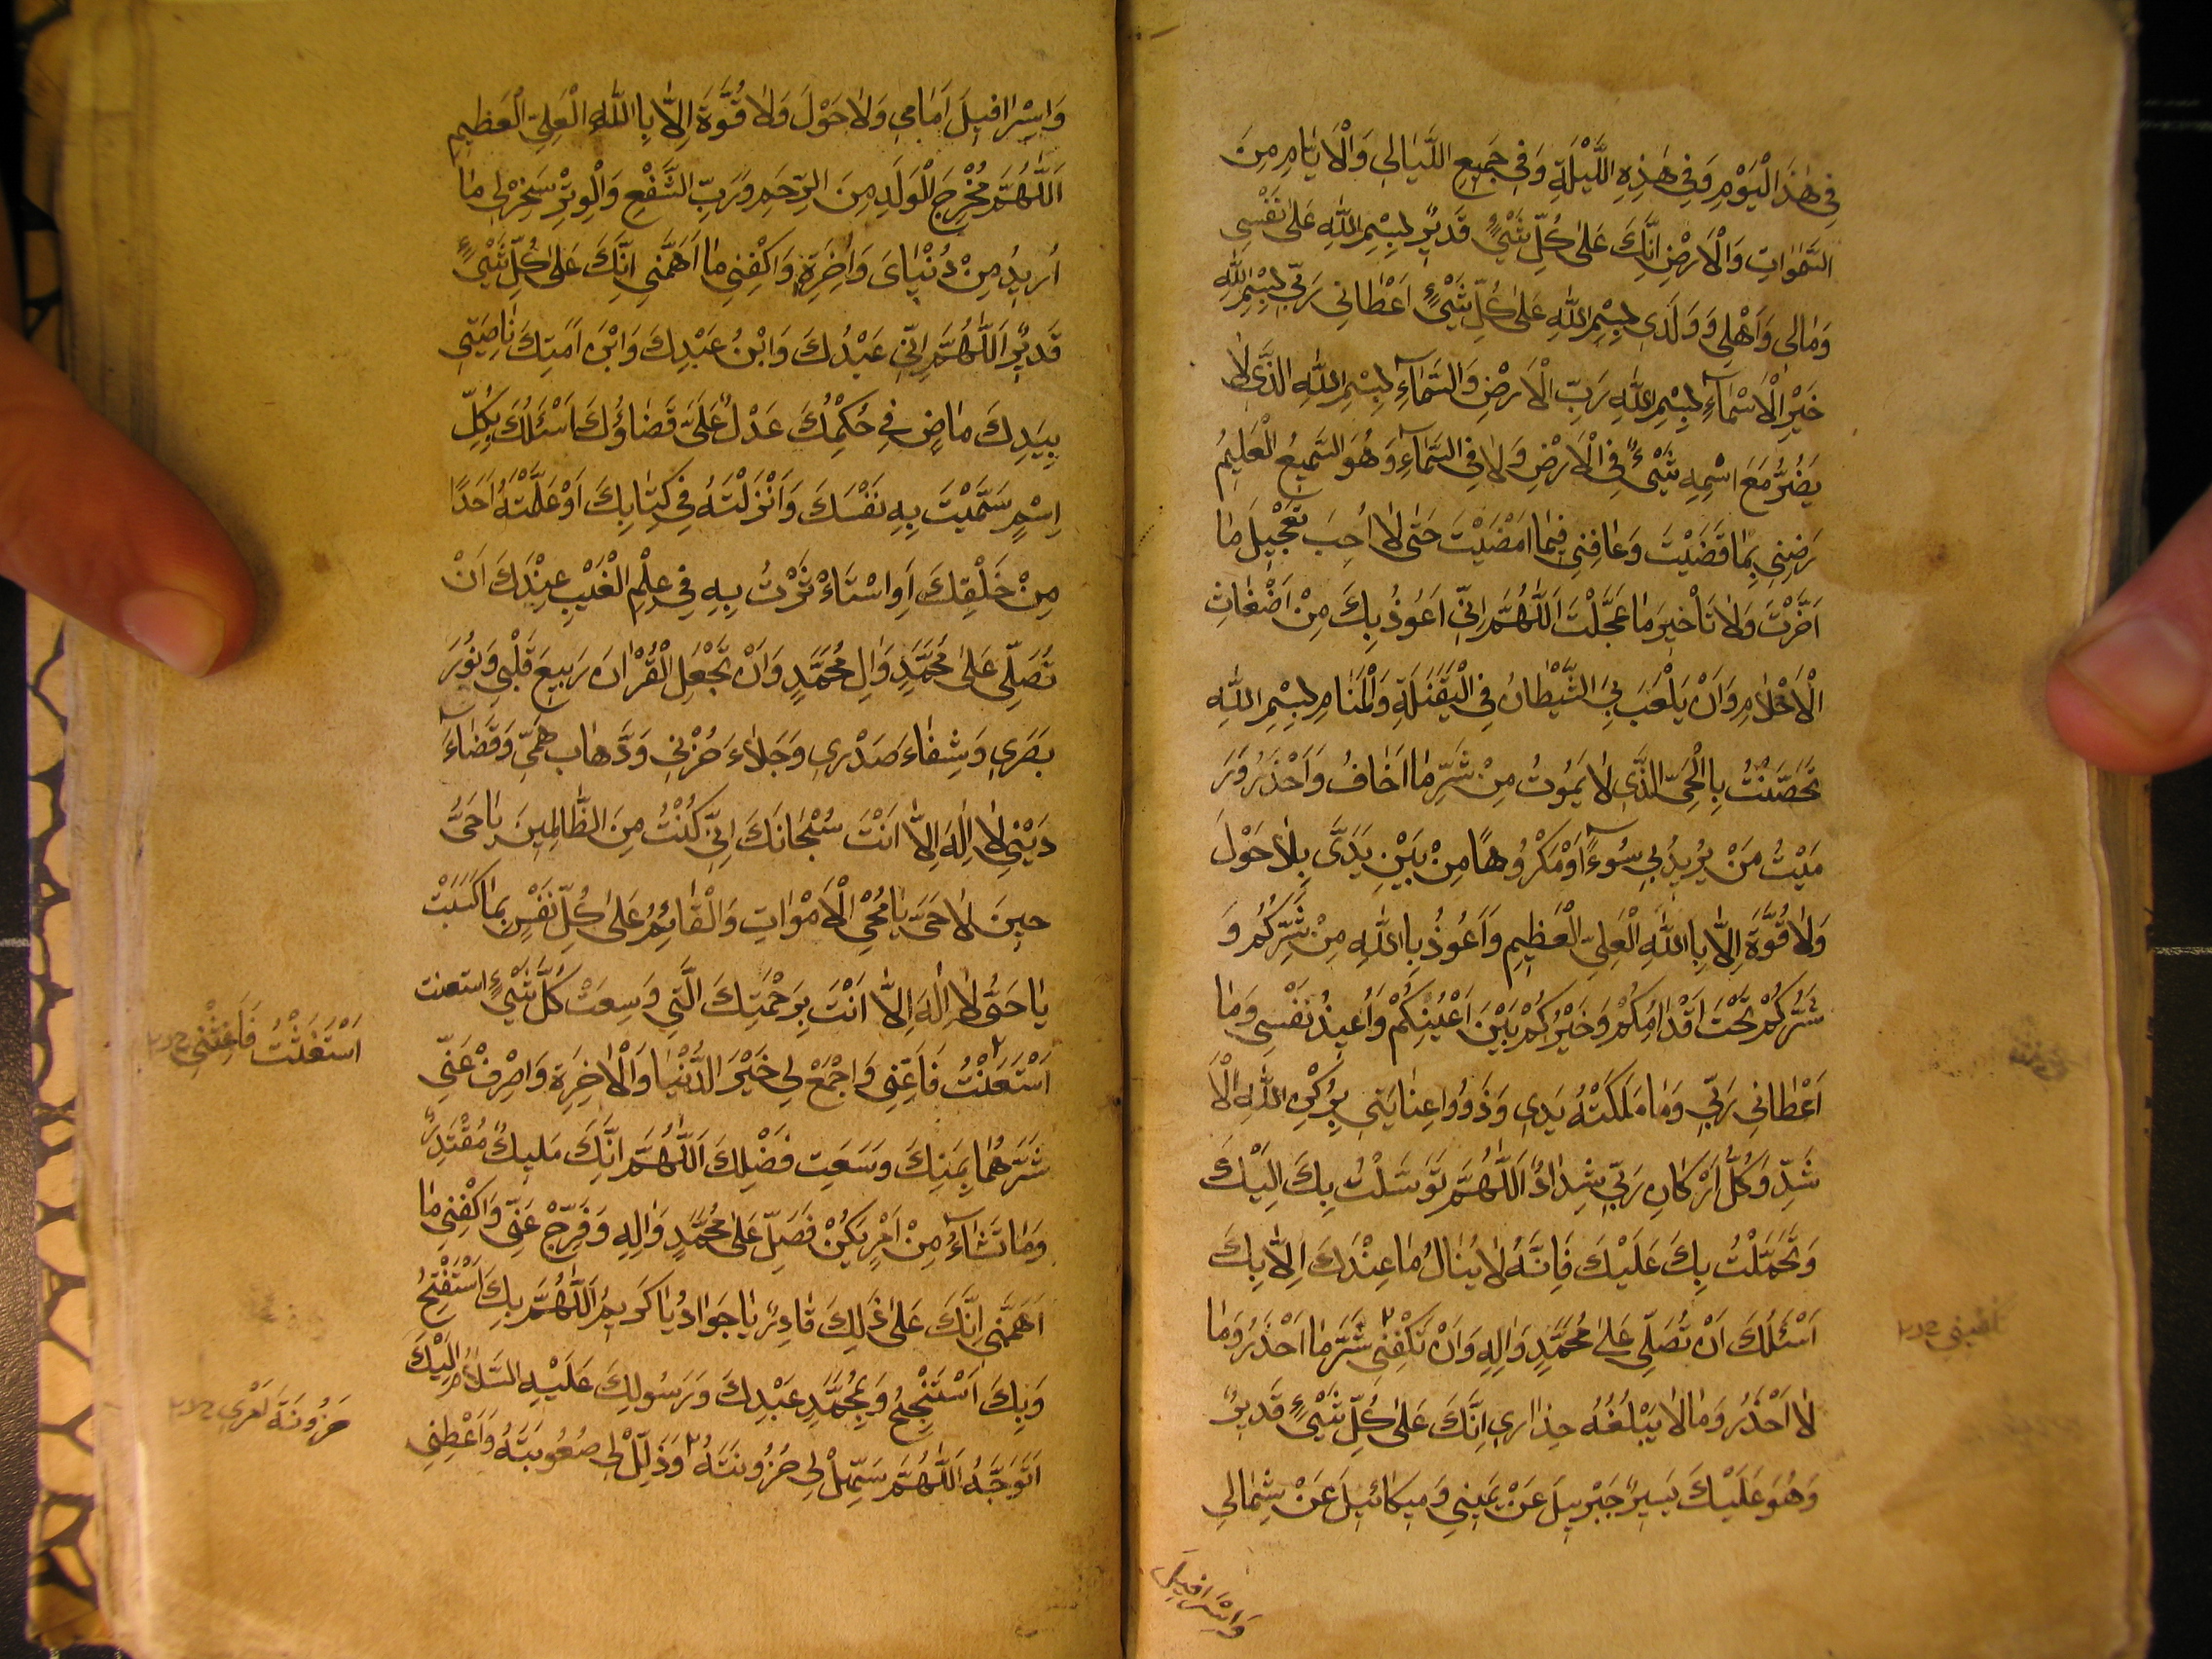 فِي هٰذَا الْيَوْمِ وَفِي هٰذِهِ اللَّيْلَةِ وَفِي جَمِيعِ اللَّيَالِي وَالْاَيَّامِ مِنَ
السَّمٰوَاتِ وَالْاَرْضِ اِنَّكَ عَلٰى كُلِّ شَيْءٍ قَدِيرٌ بِسْمِ اللّٰهِ عَلٰى نَفْسِي
وَمَالِي وَاَهْلِي وَوَلَدِي بِسْمِ اللّٰهِ عَلٰى كُلِّ شَيْءٍ اَعْطَانِي رَبِّي بِسْمِ اللّٰهِ
خَيْرِ الْاَسْمَآءِ بِسْمِ اللّٰهِ رَبِّ الْاَرْضِ وَالسَّمَآءِ بِسْمِ اللّٰهِ الَّذِي لَا
يَضُرُّ مَعَ اسْمِهِ شَيْءٌ فِي الْاَرْضِ وَلَا فِي السَّمَآءِ وَهُوَ السَّمِيعُ الْعَلِيمُ
رَضِّنِي بِمَا قَضَيْتَ وَعَافِنِي فِيمَا اَمْضَيْتَ حَتّٰى لَا اُحِبَّ تَعْجِيلَ مَا
اَخَّرْتَ وَلَا تَأْخِيرَ مَا عَجَّلْتَ اَللّٰهُمَّ اِنِّي اَعُوذُ بِكَ مِنْ اَضْغَاثِ
الْاَحْلَامِ وَاَنْ يَلْعَبَ بِيَ الشَّيْطَانُ فِي الْيَقَظَةِ وَالْمَنَامِ بِسْمِ اللّٰهِ
تَحَصَّنْتُ بِالْحَيِّ الَّذِي لَا يَمُوتُ مِنْ شَرِّ مَا اَخَافُ وَاَحْذَرُ وَرَ
مَيْتُ مَنْ يُرِيدُ بِي سُوءًا اَوْ مَكْرُوهًا مِنْ بَيْنِ يَدَيَّ بِلَا حَوْلَ
وَلَا قُوَّةَ اِلَّا بِاللّٰهِ الْعَلِيِّ الْعَظِيمِ وَاَعُوذُ بِاللّٰهِ مِنْ شَرِّكُمْ وَ
شَرُّكُمْ تَحْتَ اَقْدَامِكُمْ وَخَيْرُكُمْ بَيْنَ اَعْيُنِكُمْ وَاُعِيذُ نَفْسِي وَمَا
اَعْطَانِي رَبِّي وَمَا مَلَكَتْهُ يَدِي وَذَوُوا عِنَايَتِي بِرُكْنِ اللّٰهِ الْاَ
شَدِّ وَكُلُّ اَرْكَانِ رَبِّي شِدَادٌ اَللّٰهُمَّ تَوَسَّلْتُ بِكَ اِلَيْكَ
وَتَحَمَّلْتُ بِكَ عَلَيْكَ فَاِنَّهُ لَا يُنَالُ مَا عِنْدَكَ اِلَّا بِكَ
اَسْئَلُكَ اَنْ تُصَلِّيَ عَلٰى مُحَمَّدٍ وَاٰلِهِ وَاَنْ تَكْفِنِي شَرَّ مَا اَحْذَرُ وَمَا
لَا اَحْذَرُ وَمَا لَا يَبْلُغُهُ حِذَارِي اِنَّكَ عَلٰى كُلِّ شَيْءٍ قَدِيرٌ
وَهُوَ عَلَيْكَ يَسِيرٌ جَبْرِئِيلَ عَنْ يَمِينِي وَمِيكَائِيلَ عَنْ شِمَالِي
وَاِسْرَافِيلَ
تكفيني
وَاِسْرَافِيلَ اَمَامِي وَلَا حَوْلَ وَلَا قُوَّةَ اِلَّا بِاللّٰهِ الْعَلِيِّ الْعَظِيمِ
اَللّٰهُمَّ مُخْرِجَ الْوَلَدِ مِنَ الرَّحِمِ وَرَبِّ الشَّفْعِ وَالْوِتْرِ سَخِّرْ لِي مَا
اُرِيدُ مِنْ دُنْيَايَ وَاٰخِرَةِ وَاكْفِنِي مَا اَهَمَّنِي اِنَّكَ عَلٰى كُلِّ شَيْءٍ
قَدِيرٌ اَللّٰهُمَّ اِنِّي عَبْدُكَ وَابْنُ عَبْدِكَ وَابْنُ اَمَتِكَ نَاصِيَتِي
بِيَدِكَ مَاضٍ فِي حُكْمُكَ عَدْلٌ عَلَيَّ قَضَاؤُكَ اَسْئَلُكَ بِكُلِّ
اِسْمٍ سَمَّيْتَ بِهِ نَفْسَكَ وَاَنْزَلْتَهُ فِي كِتَابِكَ اَوْ عَلَّمْتَهُ اَحَدًا
مِنْ خَلْقِكَ اَوِ اسْتَاْثَرْتَ بِهِ فِي عِلْمِ الْغَيْبِ عِنْدَكَ اَنْ
تُصَلِّيَ عَلٰى مُحَمَّدٍ وَاٰلِ مُحَمَّدٍ وَاَنْ تَجْعَلَ الْقُرْاٰنَ رَبِيعَ قَلْبِي وَنُورَ
بَصَرِي وَشِفَاءَ صَدْرِي وَجَلَاءَ حُزْنِي وَذَهَابَ هَمِّي وَقَضَآءَ
دَيْنِي لَا اِلٰهَ اِلَّا اَنْتَ سُبْحَانَكَ اِنِّي كُنْتُ مِنَ الظَّالِمِينَ يَا حَيُّ
حِينَ لَا حَيَّ يَا مُحْيِيَ الْاَمْوَاتِ وَالْقَائِمُ عَلٰى كُلِّ نَفْسٍ بِمَا كَسَبَتْ
يَا حَيُّ لَا اِلٰهَ اِلَّا اَنْتَ بِرَحْمَتِكَ الَّتِي وَسِعَتْ كُلَّ شَيْءٍ استعنت
اَسْتَعَنْتُ فَاَعِنِّي وَاجْمَعْ لِي خَيْرَ الدُّنْيَا وَالْاٰخِرَةِ وَاصْرِفْ عَنِّي
شَرَّهُمَا بِمَنِّكَ وَسَعَتِ فَضْلِكَ اَللّٰهُمَّ اِنَّكَ مَلِيكٌ مُقْتَدِرٌ
وَمَا تَشَآءُ مِنْ اَمْرٍ يَكُنْ فَصَلِّ عَلٰى مُحَمَّدٍ وَاٰلِهِ وَفَرِّجْ عَنِّي وَاكْفِنِي مَا
اَهَمَّنِي اِنَّكَ عَلٰى ذٰلِكَ قَادِرٌ يَا جَوَادُ يَا كَرِيمُ اَللّٰهُمَّ بِكَ اَسْتَفْتِحُ
وَبِكَ اَسْتَنْجِحُ وَبِمُحَمَّدٍ عَبْدِكَ وَرَسُولِكَ عَلَيْهِ السَّلَامُ اِلَيْكَ
اَتَوَجَّهُ اَللّٰهُمَّ سَهِّلْ لِي حُزُونَتَهُ وَذَلِّلْ لِي صُعُوبَتَهُ وَاَعْطِنِي
اَسْتَغَثْتُ فَاَغِثْنِي
حُزُونَةَ اَمْرِي